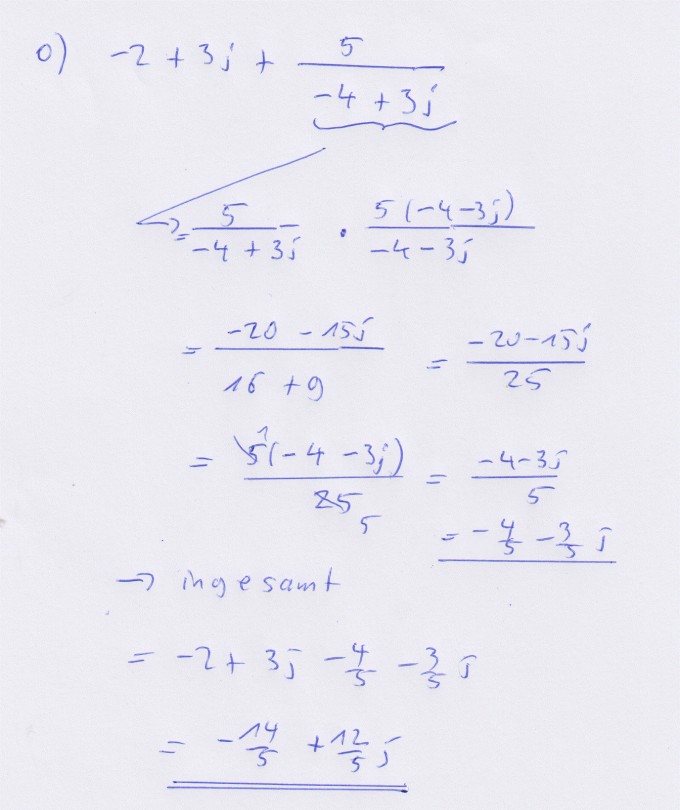 o) -2 + 3j + 5/(-4 + 3j)
→ = 5/(-4 + 3j) · 5(-4-3j)/(-4-3j)
= (-20 - 15j)/(16 + 9) = (-20-15j)/25
= 5(-4 -3j)/25 1 5 = (-4-3j)/5
= -4/5 - 3/5 j
→ ingesamt
= -2 + 3j - 4/5 - 3/5 j
= -14/5 + 12/5 j